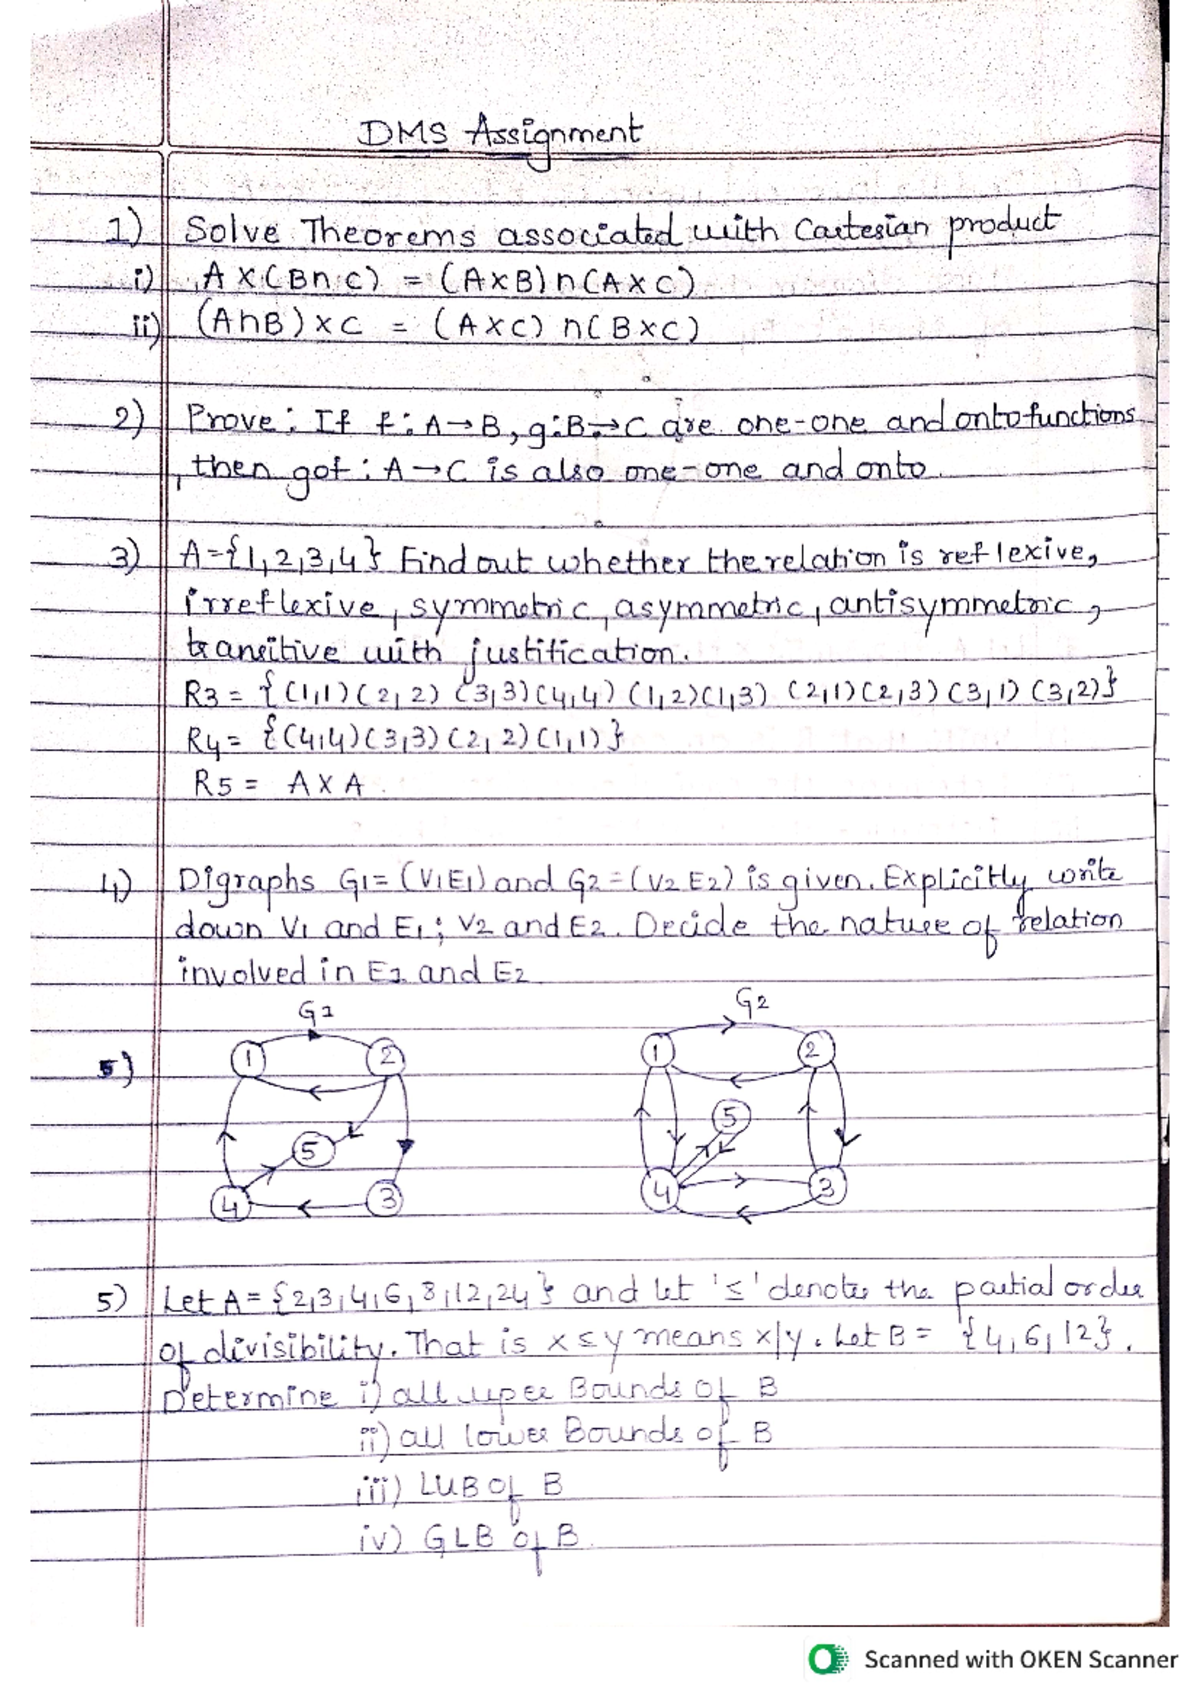 DMS Assignment
1) Solve Theorems associated with Cartesian product
i) A×(B∩C) = (A×B)∩(A×C)
ii) (A∩B)×C = (A×C)∩(B×C)
2) Prove: If f:A→B, g:B→C are one-one and onto functions
, then gof: A→C is also one-one and onto.
3) A={1,2,3,4} Find out whether the relation is reflexive,
irreflexive, symmetric, asymmetric, antisymmetric,
transitive with justification.
R3 = {(1,1)(2,2)(3,3)(4,4)(1,2)(1,3)(2,1)(2,3)(3,1)(3,2)}
R4 = {(4,4)(3,3)(2,2)(1,1)}
R5 = A×A.
4) Digraphs G1=(V1E1) and G2=(V2E2) is given. Explicitly write
down V1 and E1; V2 and E2. Decide the nature of relation
involved in E1 and E2.
G1 G2
5)
1 2 1 2
5 5
4 3 4 3
5) Let A={2,3,4,6,8,12,24} and let '≤' denotes the partial order
of divisibility. That is x≤y means x|y. Let B= {4,6,12}.
Determine i) all uper Bounds of B
ii) all lower Bounds of B
iii) LUB of B
iv) GLB of B.
Scanned with OKEN Scanner